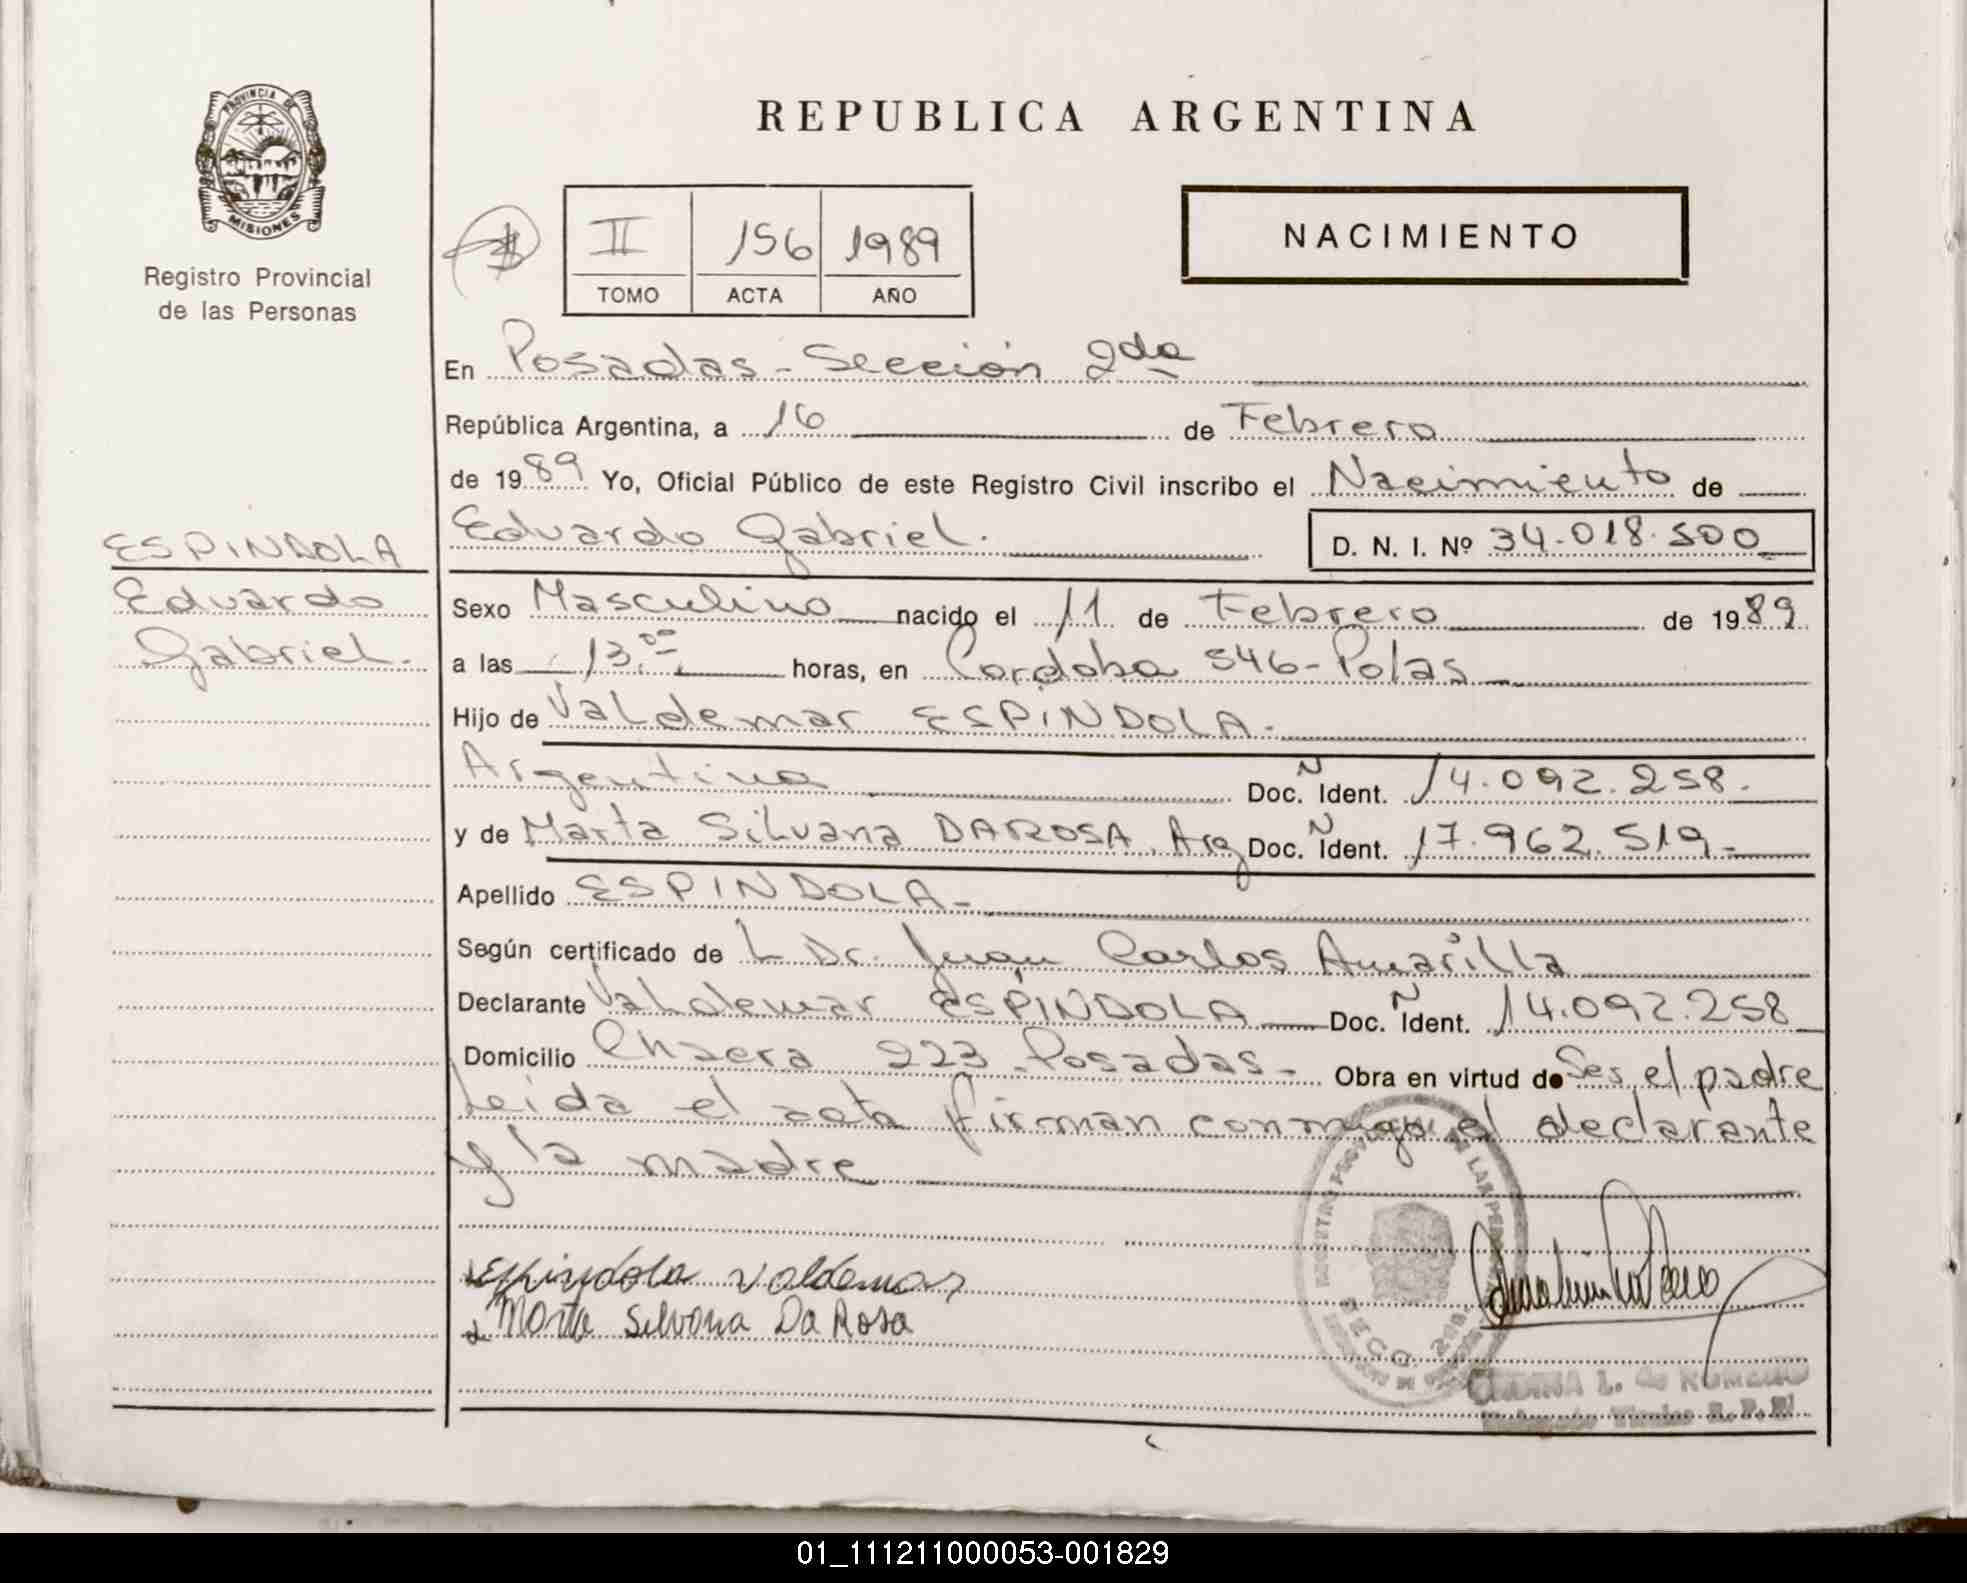 PROVINCIA DE
MISIONES
Registro Provincial
de las Personas
REPUBLICA ARGENTINA
II 156 1989
TOMO ACTA AÑO
NACIMIENTO
En Posadas - Sección 2da
República Argentina, a 16 de Febrero
de 1989 Yo, Oficial Público de este Registro Civil inscribo el Nacimiento de
ESPINDOLA
Eduardo
Gabriel.
Eduardo Gabriel. D. N. I. Nº 34.018.500
Sexo Masculino nacido el 11 de Febrero de 1989
a las 13.00 horas, en Cordoba 546-Potas
Hijo de Valdemar ESPINDOLA.
Argentina Doc. Ñ Ident. 14.092.258.
y de Marta Silvana DAROSA, Arg Doc. Ñ Ident. 17.962.519-
Apellido ESPINDOLA-
Según certificado de L Dr. Juan Carlos Amarilla
Declarante Valdemar ESPINDOLA Doc. Ñ Ident. 14.092.258
Domicilio Chacra 223-Posadas- Obra en virtud de Ser el padre
Leida el acta firman conmigo el declarante
y la madre
Espindola Valdemar
Marta Silvana Da Rosa
L. de ROMERO
01_111211000053-001829